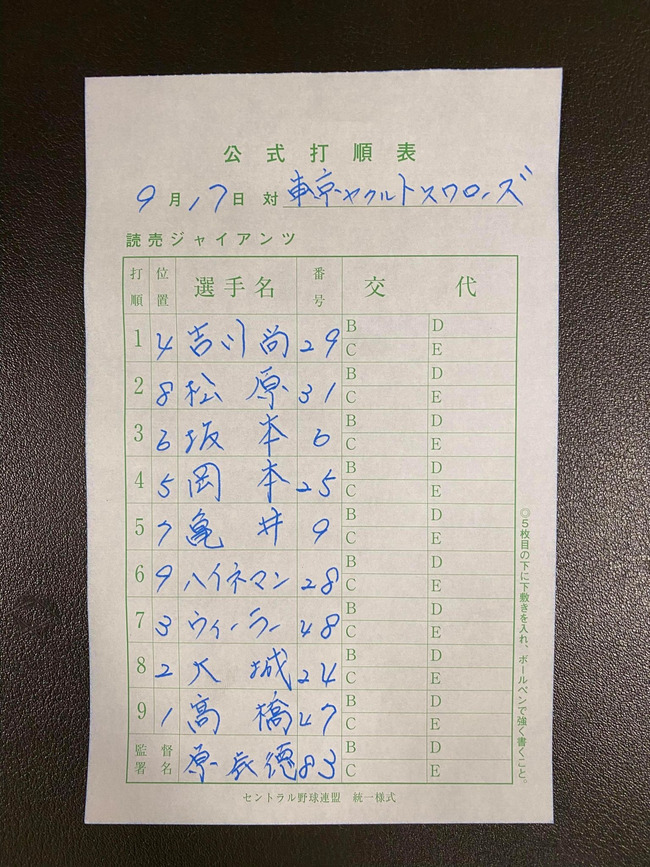 公式打順表
9月17日 対 東京ヤクルトスワローズ
読売ジャイアンツ
打順 位置 選手名 番号 交代
1 4 吉川尚 29 B D C E
2 8 松原 31 B D C E
3 6 坂本 6 B D C E
4 5 岡本 25 B D C E
5 7 亀井 9 B D C E
6 9 ハイネマン 28 B D C E
7 3 ウィーラー 48 B D C E
8 2 大城 24 B D C E
9 1 高橋 47 B D C E
監督署名 原辰徳 83 B D C E
◎5枚目の下に下敷きを入れ、ボールペンで強く書くこと。
セントラル野球連盟 統一様式